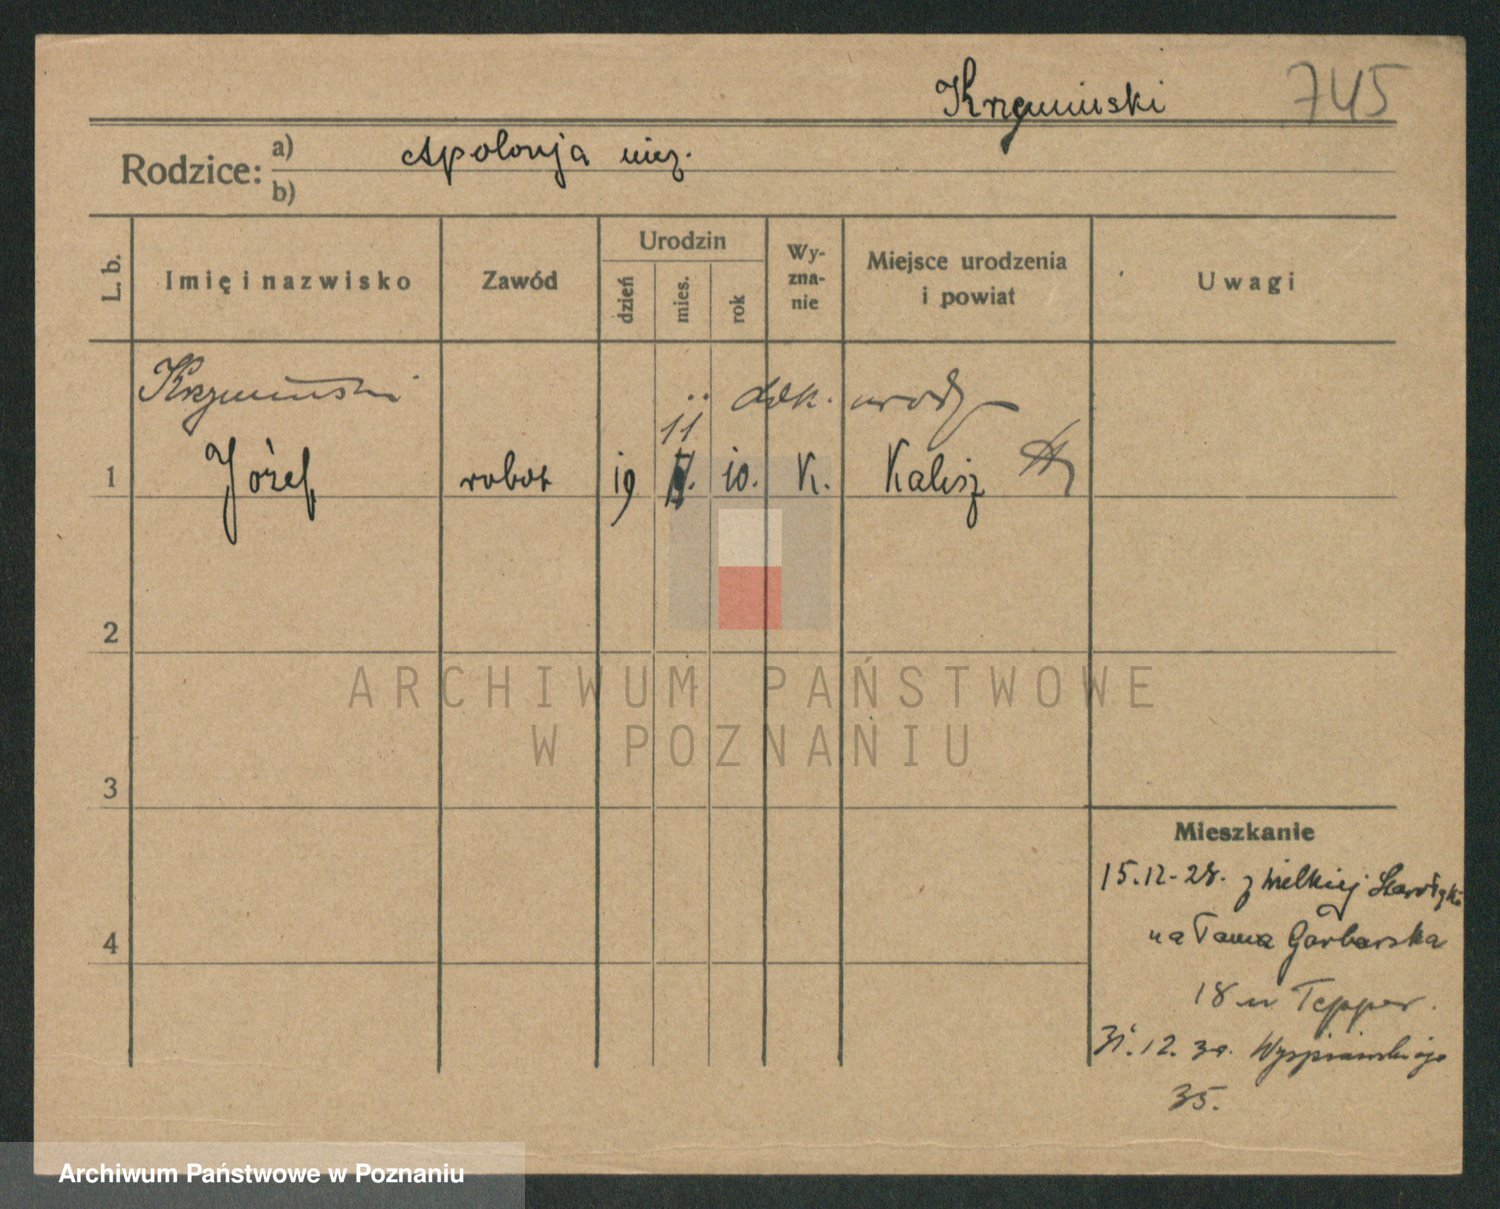 Krzymiński 745
Rodzice: a) Apolonja niez.
b)
L. b. Imię i nazwisko Zawód Urodzin dzień mies. rok Wyznanie Miejsce urodzenia i powiat Uwagi
Krzymiński 11 dok. urodz
1 Józef robot 19 10. K. Kalisz
2
3
4
Mieszkanie
15.12.28. z Wielkiej Starołęki
na Tama Garbarska
18 u Tepper.
31.12.30. Wyspiańskiego
35.
ARCHIWUM PAŃSTWOWE
W POZNANIU
Archiwum Państwowe w Poznaniu